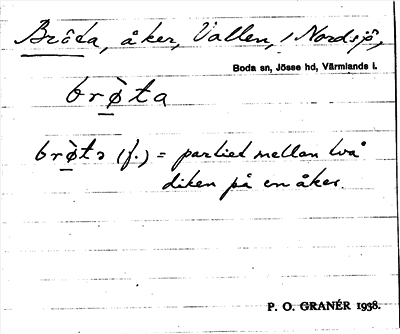 Bröta, åker, Vallen, i Nordsjö,
Boda sn, Jösse hd, Värmlands l.
brø̀ta
brø̀tɔ (f.) = partiet mellan två
diken på en åker.
P. O. GRANÉR 1938.